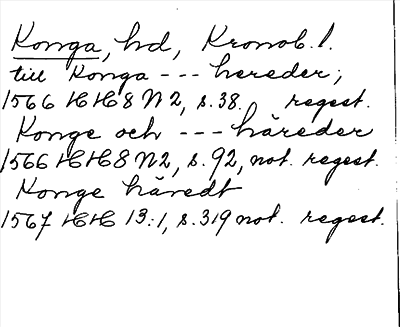 Konga, hd, Kronob. l.
till Konga --- hereder;
1566 HH 8 N 2, s. 38. regest.
Konge och --- häreder
1566 HH 8 N 2, s. 92, not. regest.
Konge häredt
1567 HH 13:1, s. 319 not. regest.